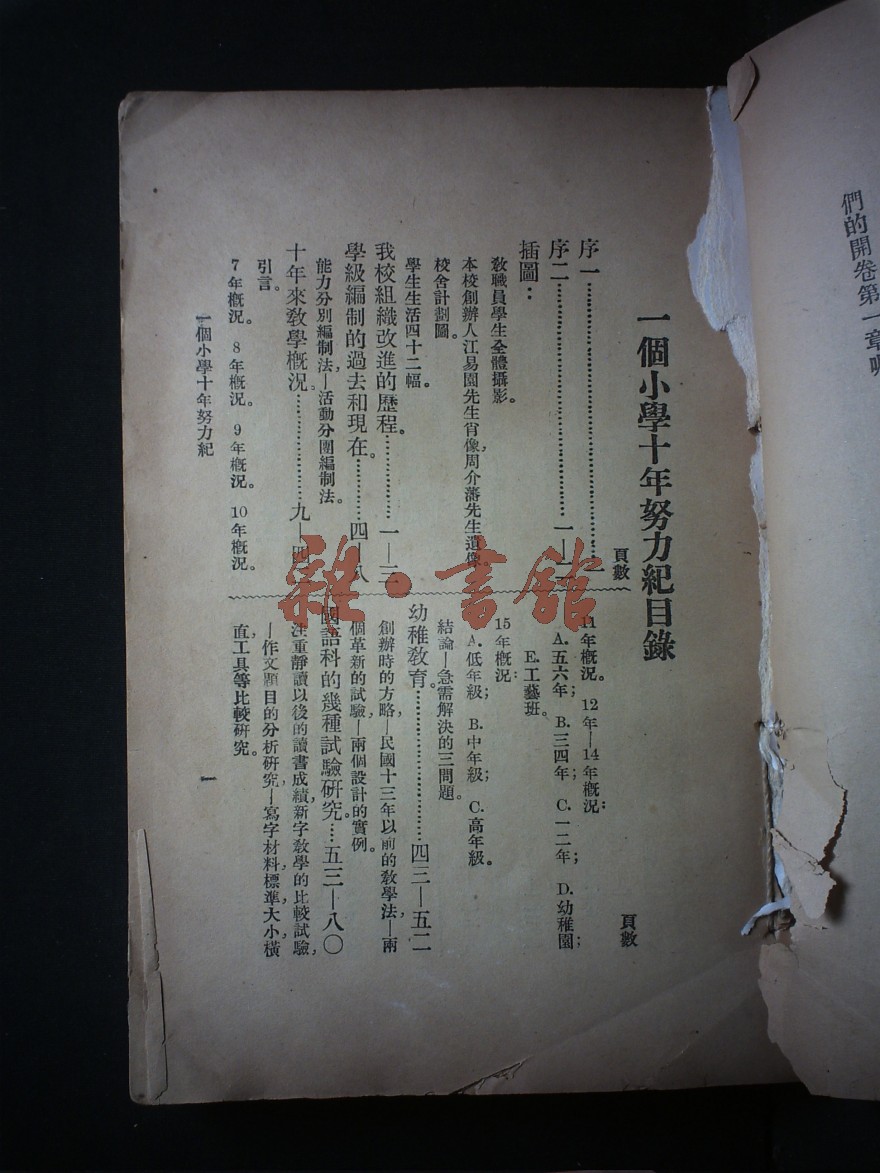 們的開卷第一章呢
一個小學十年努力紀目錄
頁數
序一……………………………一
序二……………………………一—二
插圖：
敎職員學生全體攝影。
本校創辦人江易園先生肖像，周介藩先生遺像。
校舍計劃圖。
學生生活四十二幅。
我校組織改進的歷程。……………一—三
學級編制的過去和現在。………四—八
能力分別編制法—活動分團編制法。
十年來敎學槪況。………………九—四
引言。
7年槪況。 8年槪況。 9年槪況。 10年槪況。
頁數
11年槪況。 12年—14年槪況：
A.五六年； B.三四年； C.一二年； D.幼稚園；
E.工藝班。
15年槪況：
A.低年級； B.中年級； C.高年級。
結論—急需解決的三問題。
幼稚敎育。……………………四三—五二
創辦時的方略，—民國十三年以前的敎學法，—兩
個革新的試驗，—兩個設計的實例。
國語科的幾種試驗研究。…五三—八〇
注重靜讀以後的讀書成績，新字敎學的比較試驗，
—作文題目的分析研究，—寫字材料，標準，大小，橫
直，工具等比較研究。
一個小學十年努力紀
一
雜·書館